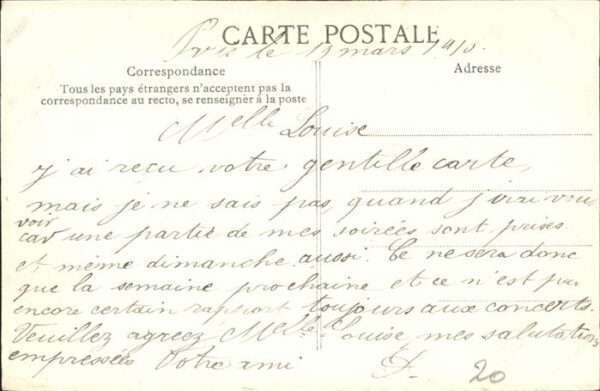 CARTE POSTALE
le 11 mars 1910.
Correspondance
Adresse
Tous les pays étrangers n'acceptent pas la
correspondance au recto, se renseigner à la poste
Melle Louise
J'ai reçu votre gentille carte,
mais je ne sais pas, quand j'irai vous
voir
car une partie de mes soirées sont prises
et même dimanche aussi. Ce ne sera donc
que la semaine prochaine et ce n'est pas
encore certain toujours aux concerts.
Veuillez agréez Melle Louise mes salutations
empressées Votre ami
20